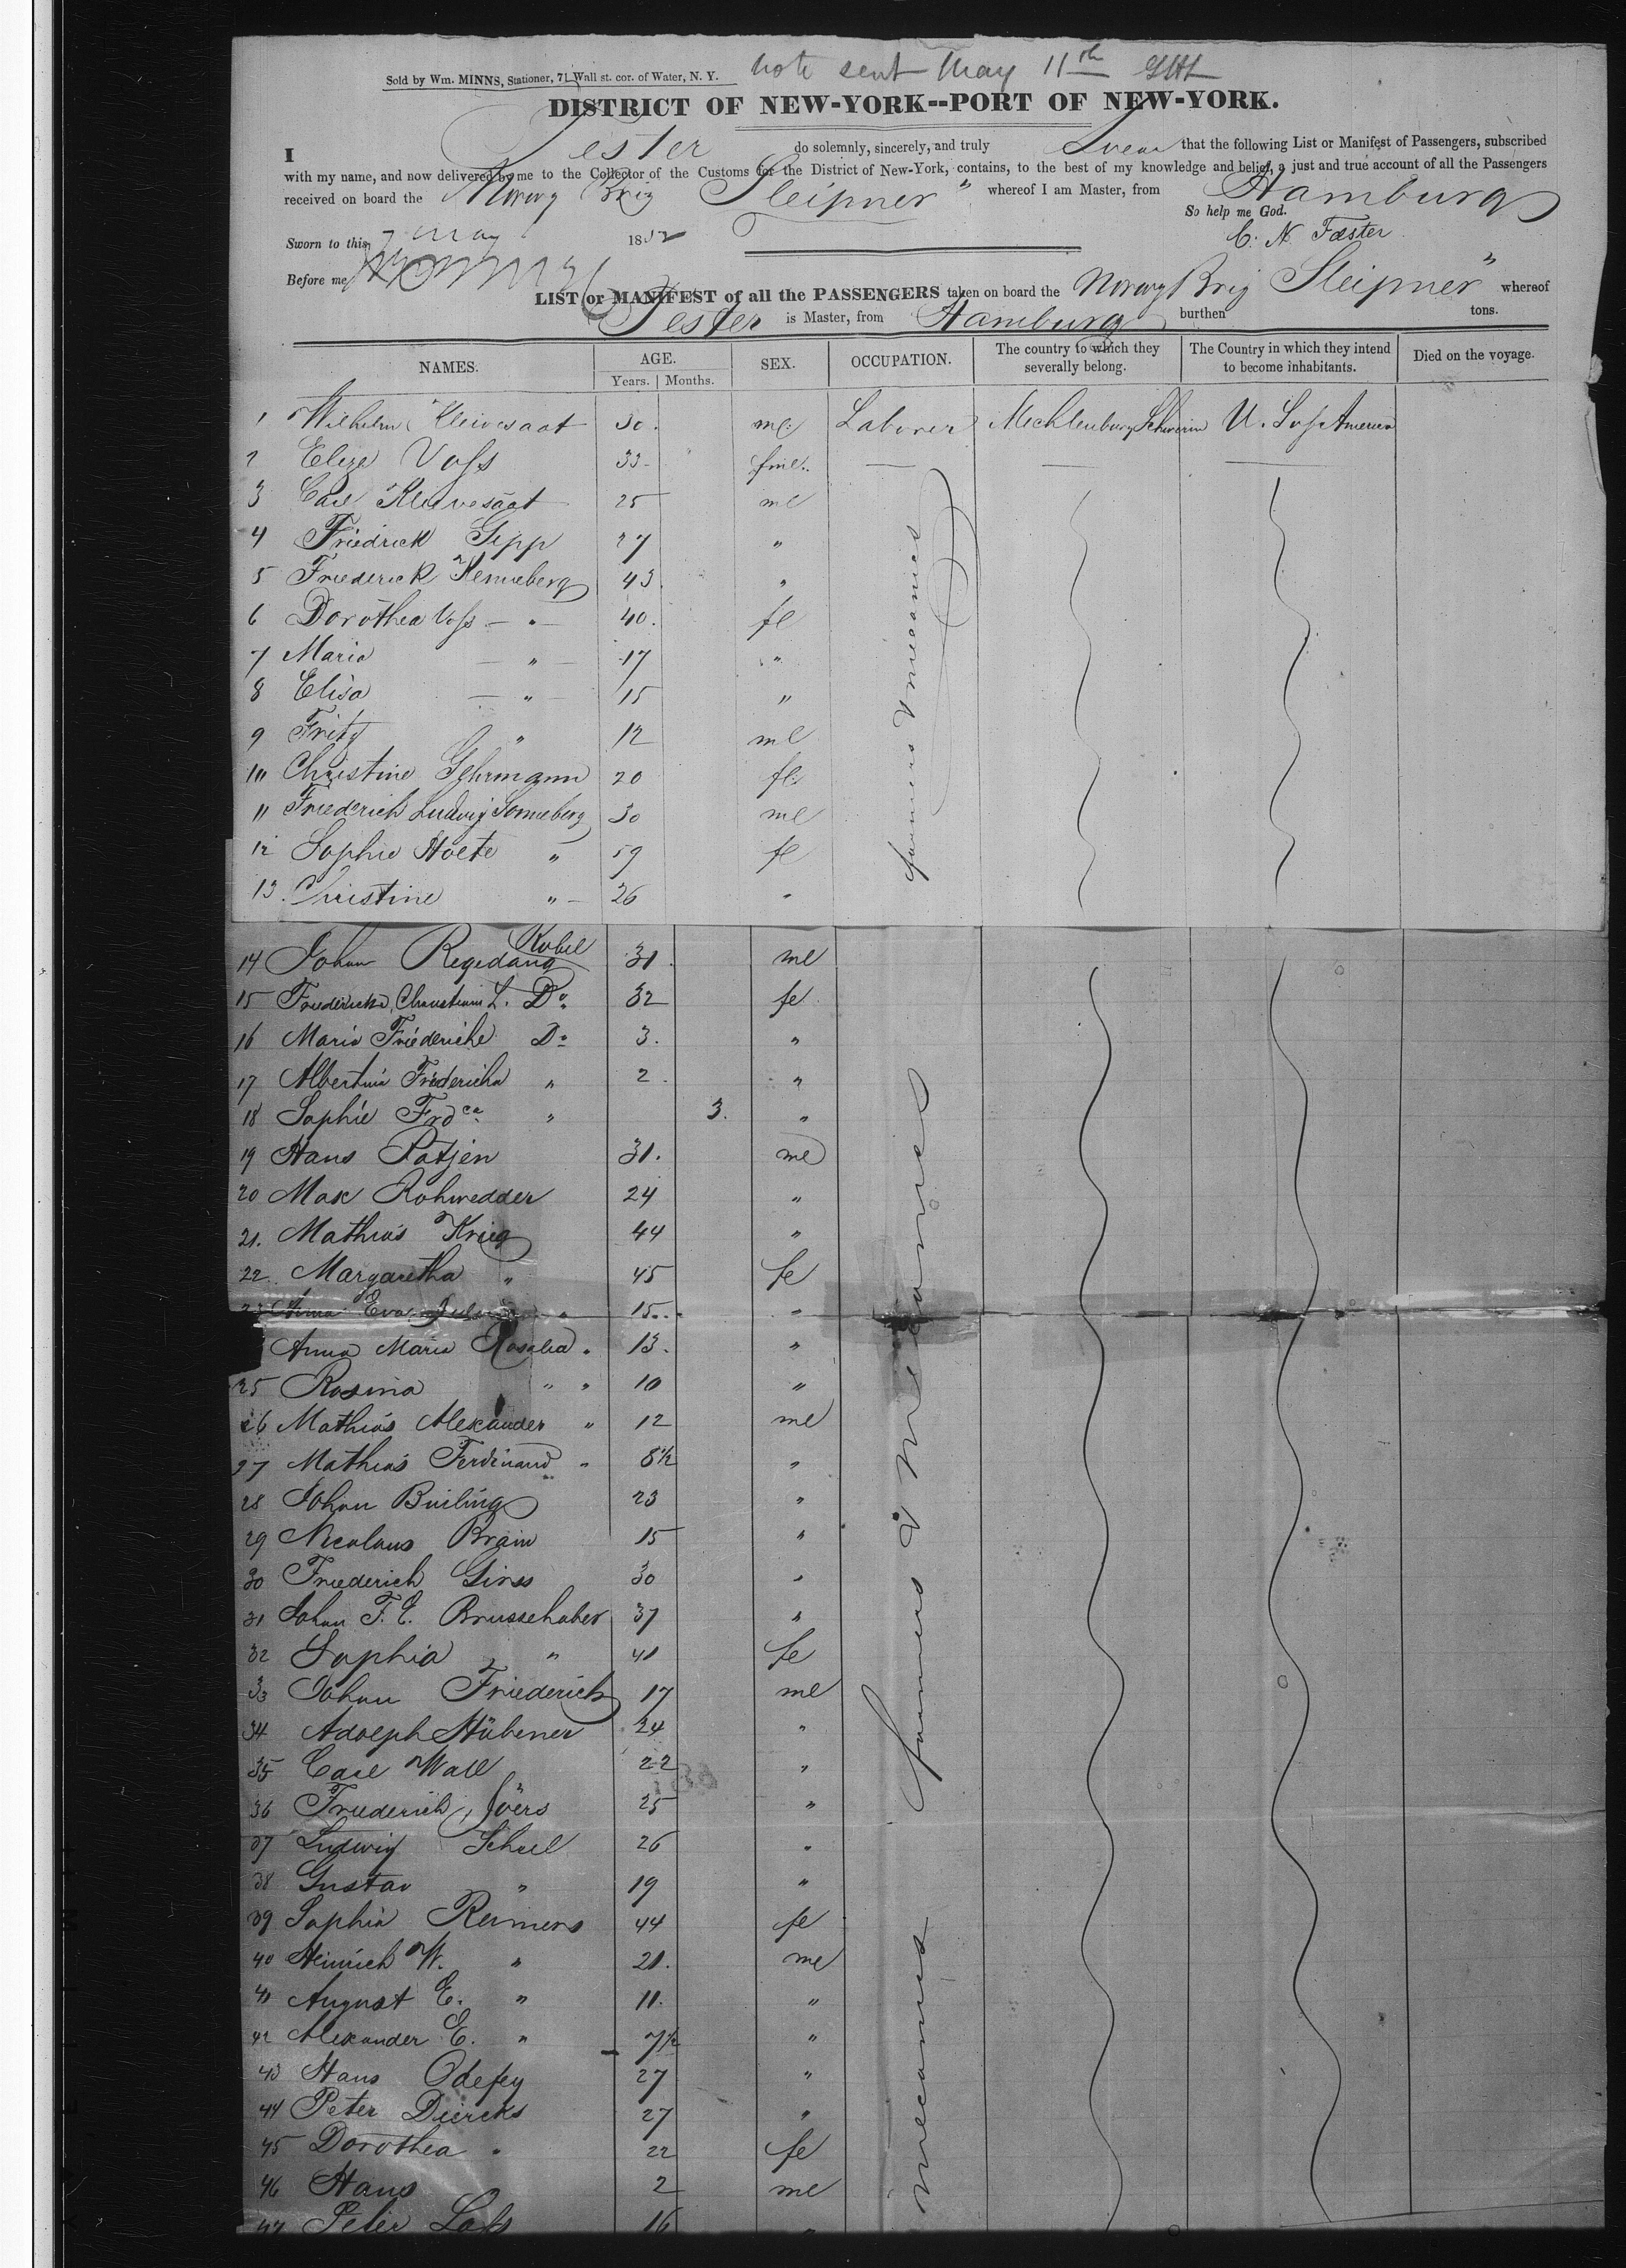 Sold by Wm. MINNS, Stationer, 71 Wall st. cor. of Water, N. Y. note sent May 11th
DISTRICT OF NEW-YORK--PORT OF NEW-YORK.
I Fester do solemnly, sincerely, and truly Swear that the following List or Manifest of Passengers, subscribed
with my name, and now delivered by me to the Collector of the Customs for the District of New-York, contains, to the best of my knowledge and belief, a just and true account of all the Passengers
received on board the Norwg Brig Sleipner" whereof I am Master, from Hamburg
So help me God.
Sworn to this 7 May 1852 C. N. Fæster
Before me
LIST or MANIFEST of all the PASSENGERS taken on board the Norwg Brig Sleipner" whereof
Fester is Master, from Hamburg burthen tons.
NAMES. AGE. Years. Months. SEX. OCCUPATION. The country to which they severally belong. The Country in which they intend to become inhabitants. Died on the voyage.
1 Wilhelm 30. ml. Laborer Mechlenburg Schwerin U. S. of America
2 Elize Voss 33 fml.
3 Carl 25 ml
4 Friedrick Gipp 27 "
5 Friederick 43. "
6 Dorothea Voss - " - 40. fe
7 Maria - " - 17 "
8 Elisa - " - 15 "
9 Fritz " 12 ml
10 Christine Gehrmann 20 fe.
11 Friederich Ludwig Sonneberg 30 ml
12 Sophie " 59 fe
13. Christine " - 26 "
farmers & mecanics
14 Johan Regedang Kobel 31. ml
15 Do 32 fe
16 Maria Friederiche Do 3. "
17 Albertina Fridericha " 2. "
18 Sophie Frdca " 3. "
19 Hans Patjen 31. ml
20 Max Rohwedder 24 "
21. Mathias Krieg 44 "
22. Margaretha " 45 fe
23 Anna Eva " 15. "
Anna Maria Rosalia " 13. "
25 Rosina " " 10 "
26 Mathias Alexander " 12 ml
27 Mathias Ferdinand " 8½ "
28 Johan Builing 23 "
29 Nicolaus Brain 15 "
30 Friederich Girss 30 "
31 Johan F. C. Brussehaber 37 "
32 Sophia " 41 fe
33 Johan Friederich 17 ml
34 Adolph Hübener 24 "
35 Carl Wall 22 "
36 Friederich Jöers 25 "
37 Ludwig Scheel 26 "
38 Gustav " 19 "
39 Sophia Reimers 44 fe
40 Heinrich W. " 21. ml
41 August E. " 11. "
42 Alexander E. " 7½ "
43 Hans Odefey 27 "
44 Peter Diercks 27 "
45 Dorothea " 22 fe
46 Hans 2 ml
47 Peter Lass 16 "
farmers & mecanics
mecanics